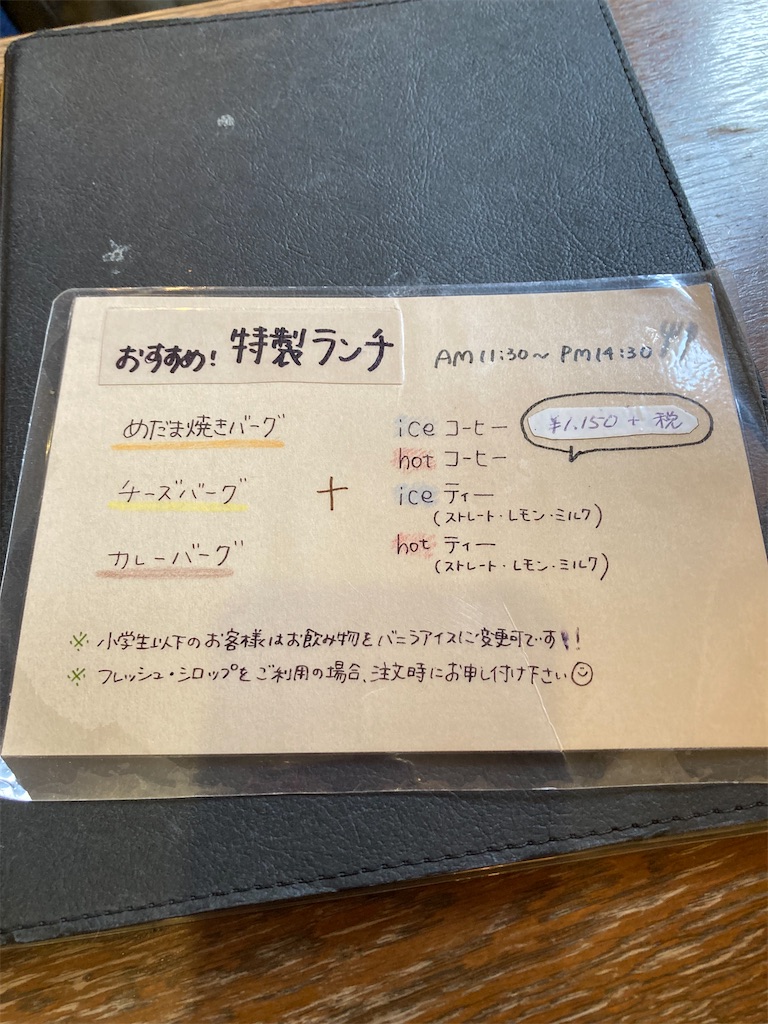 おすすめ! 特製ランチ AM11:30~PM14:30
めだま焼きバーグ
チーズバーグ
カレーバーグ
+
ice コーヒー
¥1.150 + 税
hot コーヒー
ice ティー
(ストレート・レモン・ミルク)
hot ティー
(ストレート・レモン・ミルク)
※ 小学生以下のお客様はお飲み物をバニラアイスに変更可です!!
※ フレッシュ・シロップをご利用の場合、注文時にお申し付け下さい☺